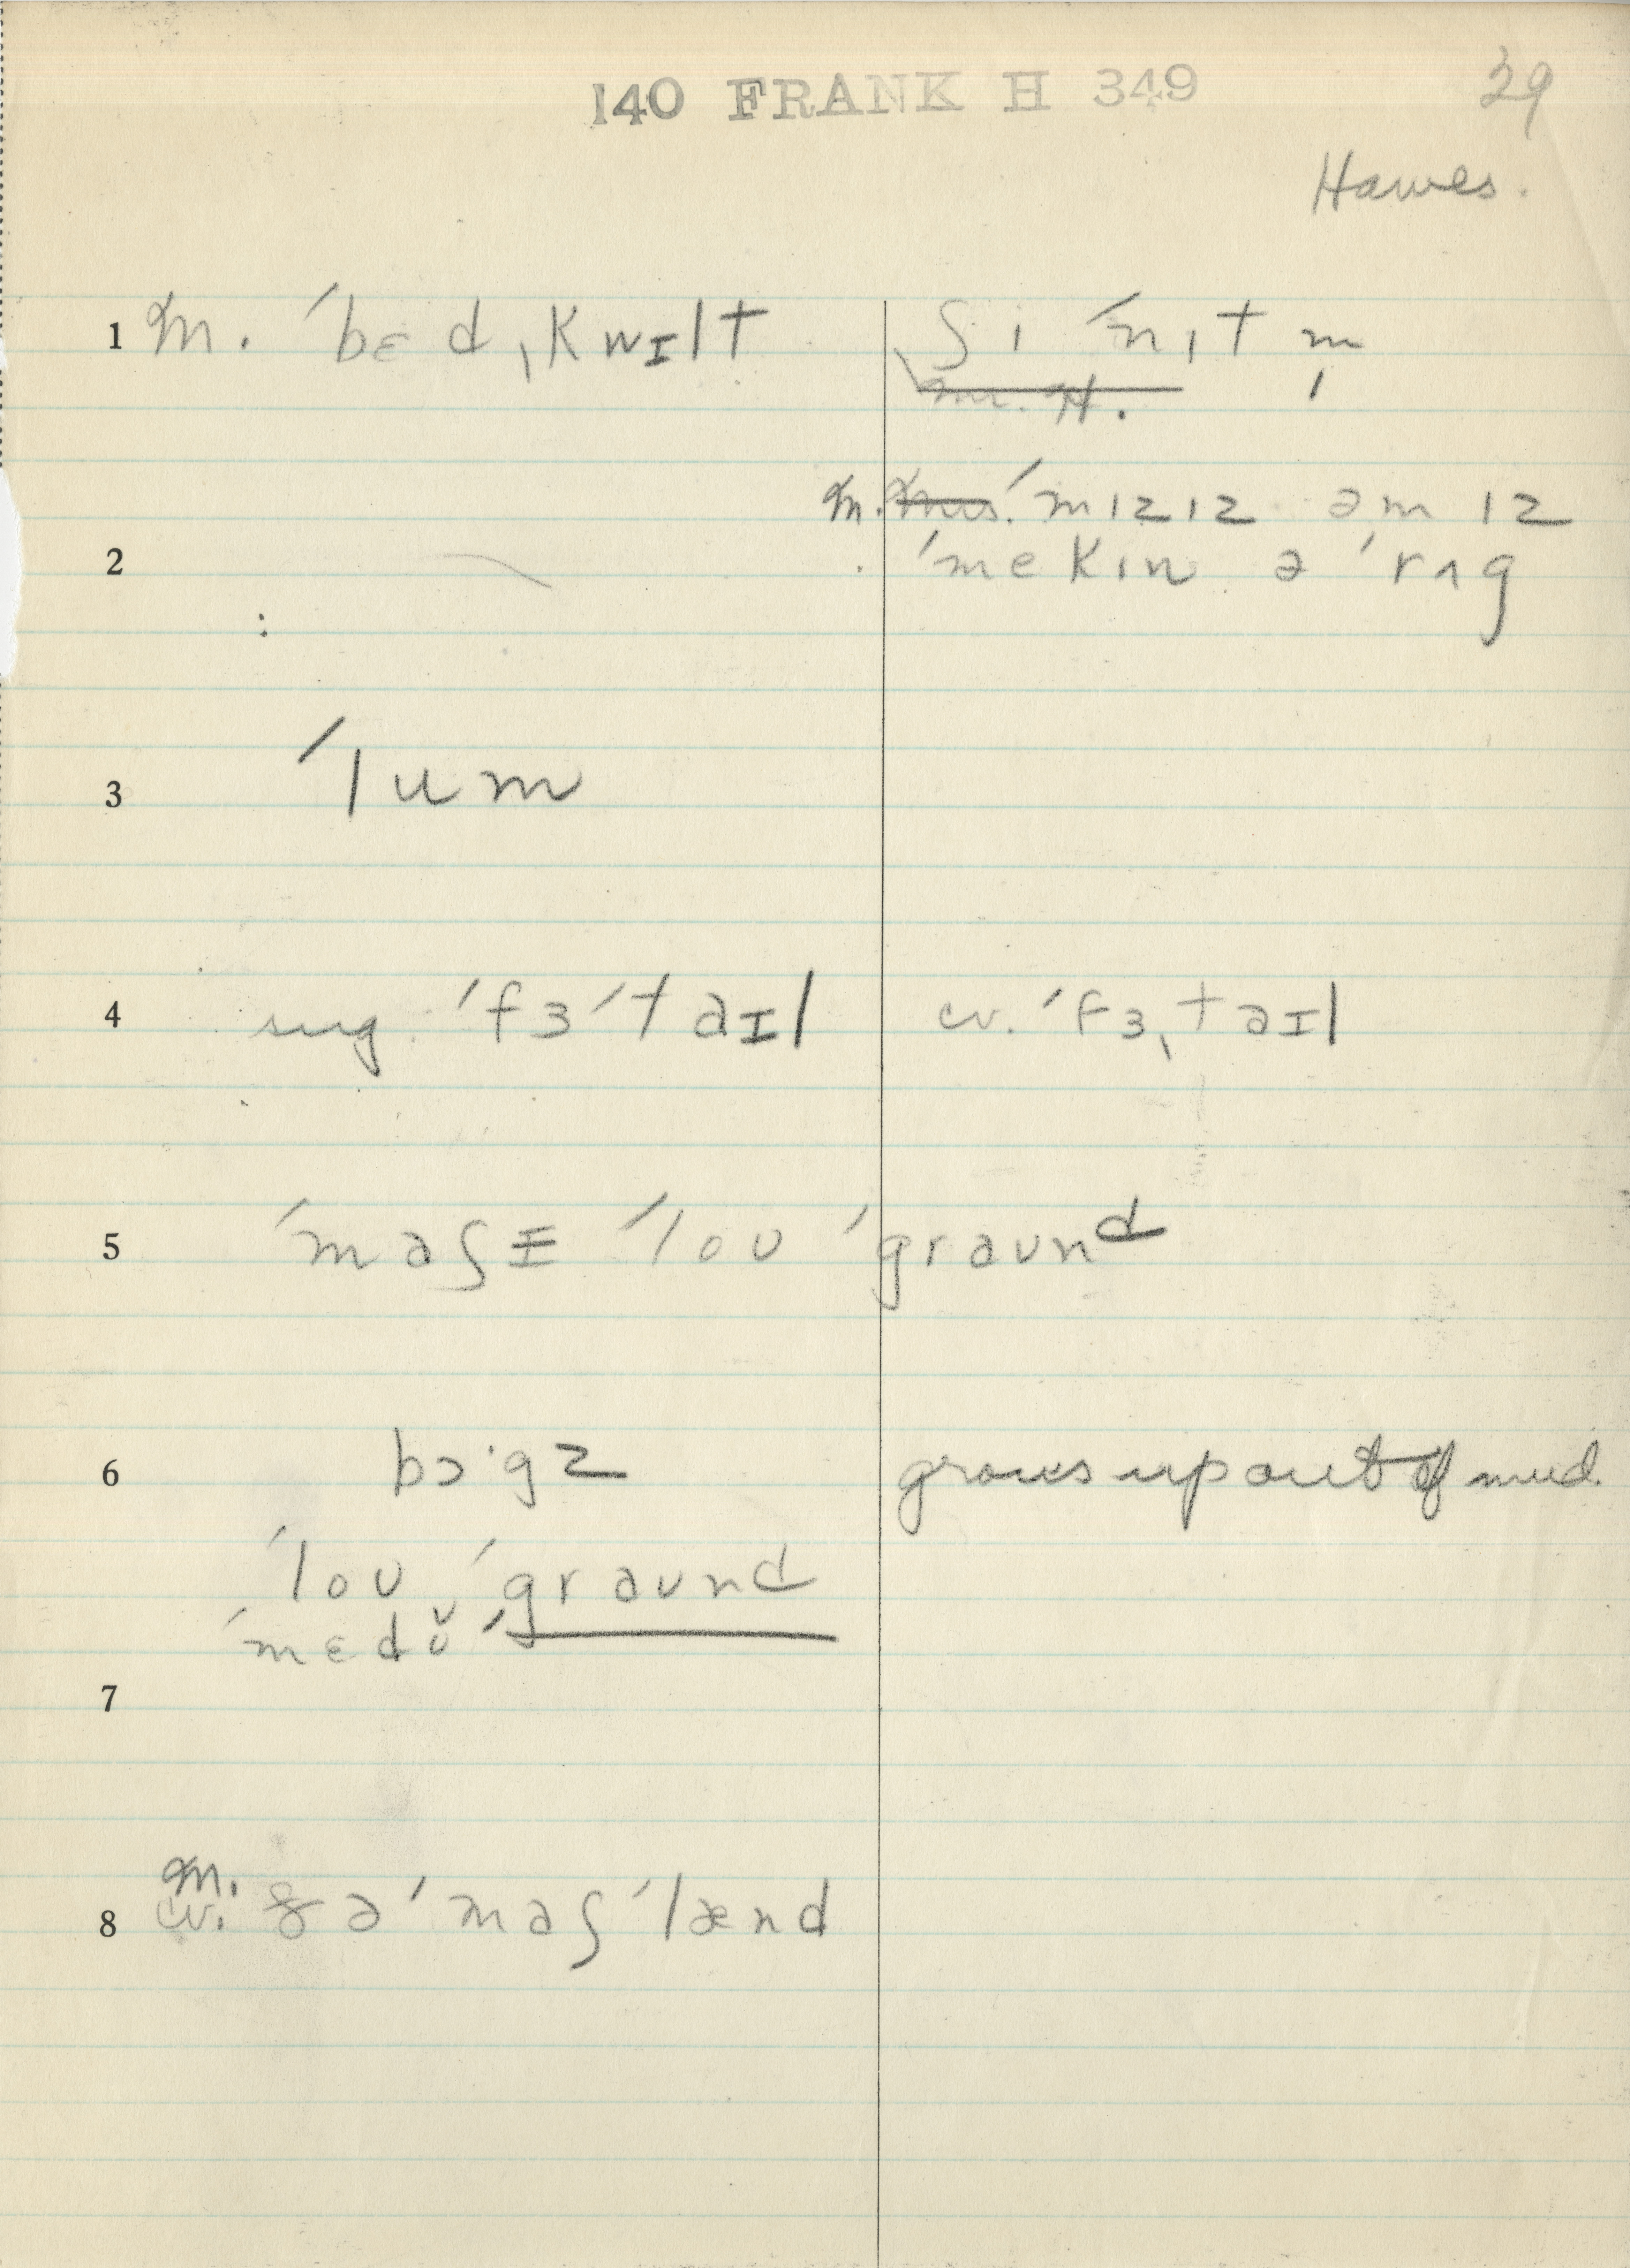 140 FRANK H 349 29
Hawes.
1 m. ˈbɛd ˌkwɪlt ʃi ˈnɪt m̩
m. H.
m. mrs. ˈmɪzɪz əm ɪz
2 ˈmekɪn ə ˈrʌg
3 ˈlum
4 sug. ˈfɜˈtaɪl cv. ˈfɜˌtaɪl
5 ˈmaʃɪ ˈloʊ ˈgraʊnd
6 bɔ·gz grows up out of mud.
ˈloʊ ˈgraʊnd
ˈmɛdʊ̆ ˈ
7
m.
8 cv. ðə ˈmaʃ ˈlænd